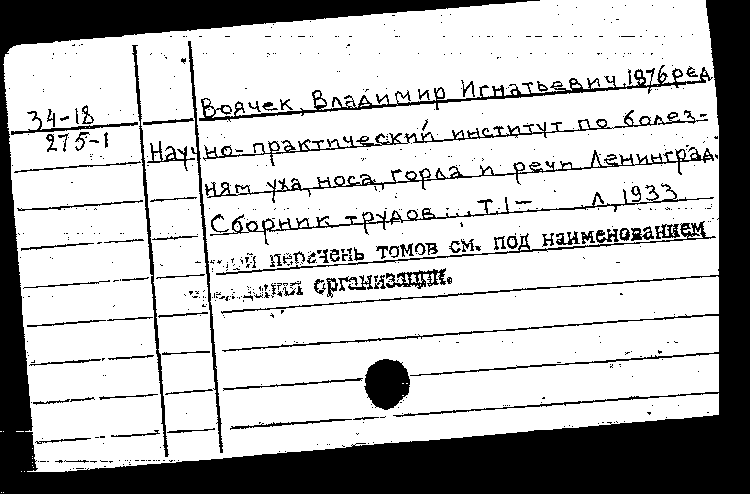 34-18
275-1
Воячек, Владимир Игнатьевич, 1876 ред
Научно-практический институт по болез-
ням уха, носа, горла и речи Ленинград.
Сборник трудов... Т.1- Л, 1933
перечень томов см. под наименованием
организации.